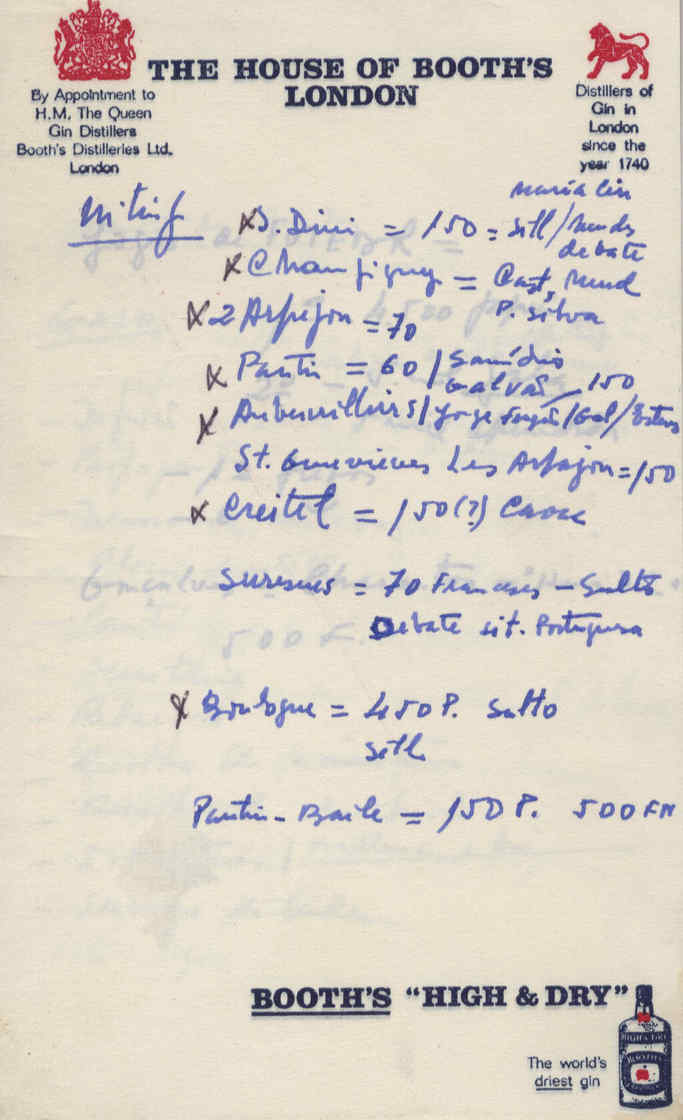 THE HOUSE OF BOOTH'S
LONDON
By Appointment to
H.M. The Queen
Gin Distillers
Booth's Distilleries Ltd.
London
Distillers of
Gin in
London
since the
year 1740
Maria
x S. Dini = 150 = Setl/Mendes
debate
x Champigny = Cast. Mend
P. Silva
x 2 Arpejon = 70
x Pantin = 60 /
150
x Aubervilliers/Jorge /Gal/Esteves
St. Genevieves Les Arpajon = 150
x Creitel = 150 (?)
Suresnes = 70 Franceses - Salto
Debate sit. Portuguesa
x Boulogne = 450 P. Salto
Setl
Pantin - Baile = 150 P. 500 FN
BOOTH'S "HIGH & DRY"
The world's
driest gin
HIGH & DRY
BOOTH'S